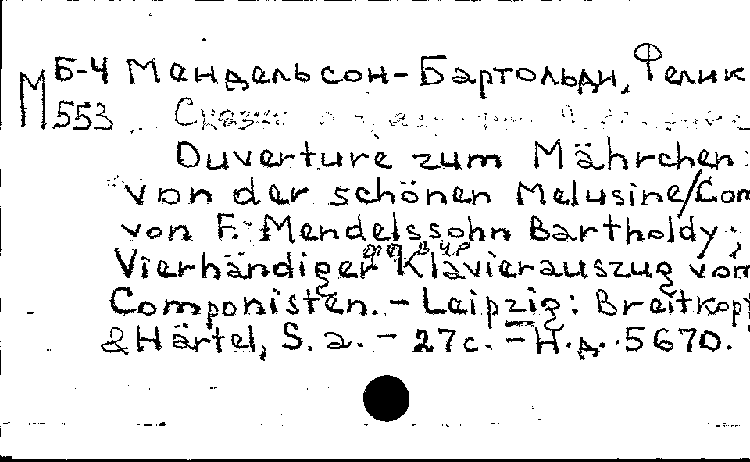 Б-4 Мендельсон-Бартольди, Фелик
М 553 Сказка о
Ouverture zum Mährchen:
"Von der schönen Melusine/Com
von F. Mendelssohn Bartholdy;
Vierhändiger Klavierauszug vom
Componisten. - Leipzig: Breitkopf
& Härtel, S. a. - 27c. - Н.д. 5670.